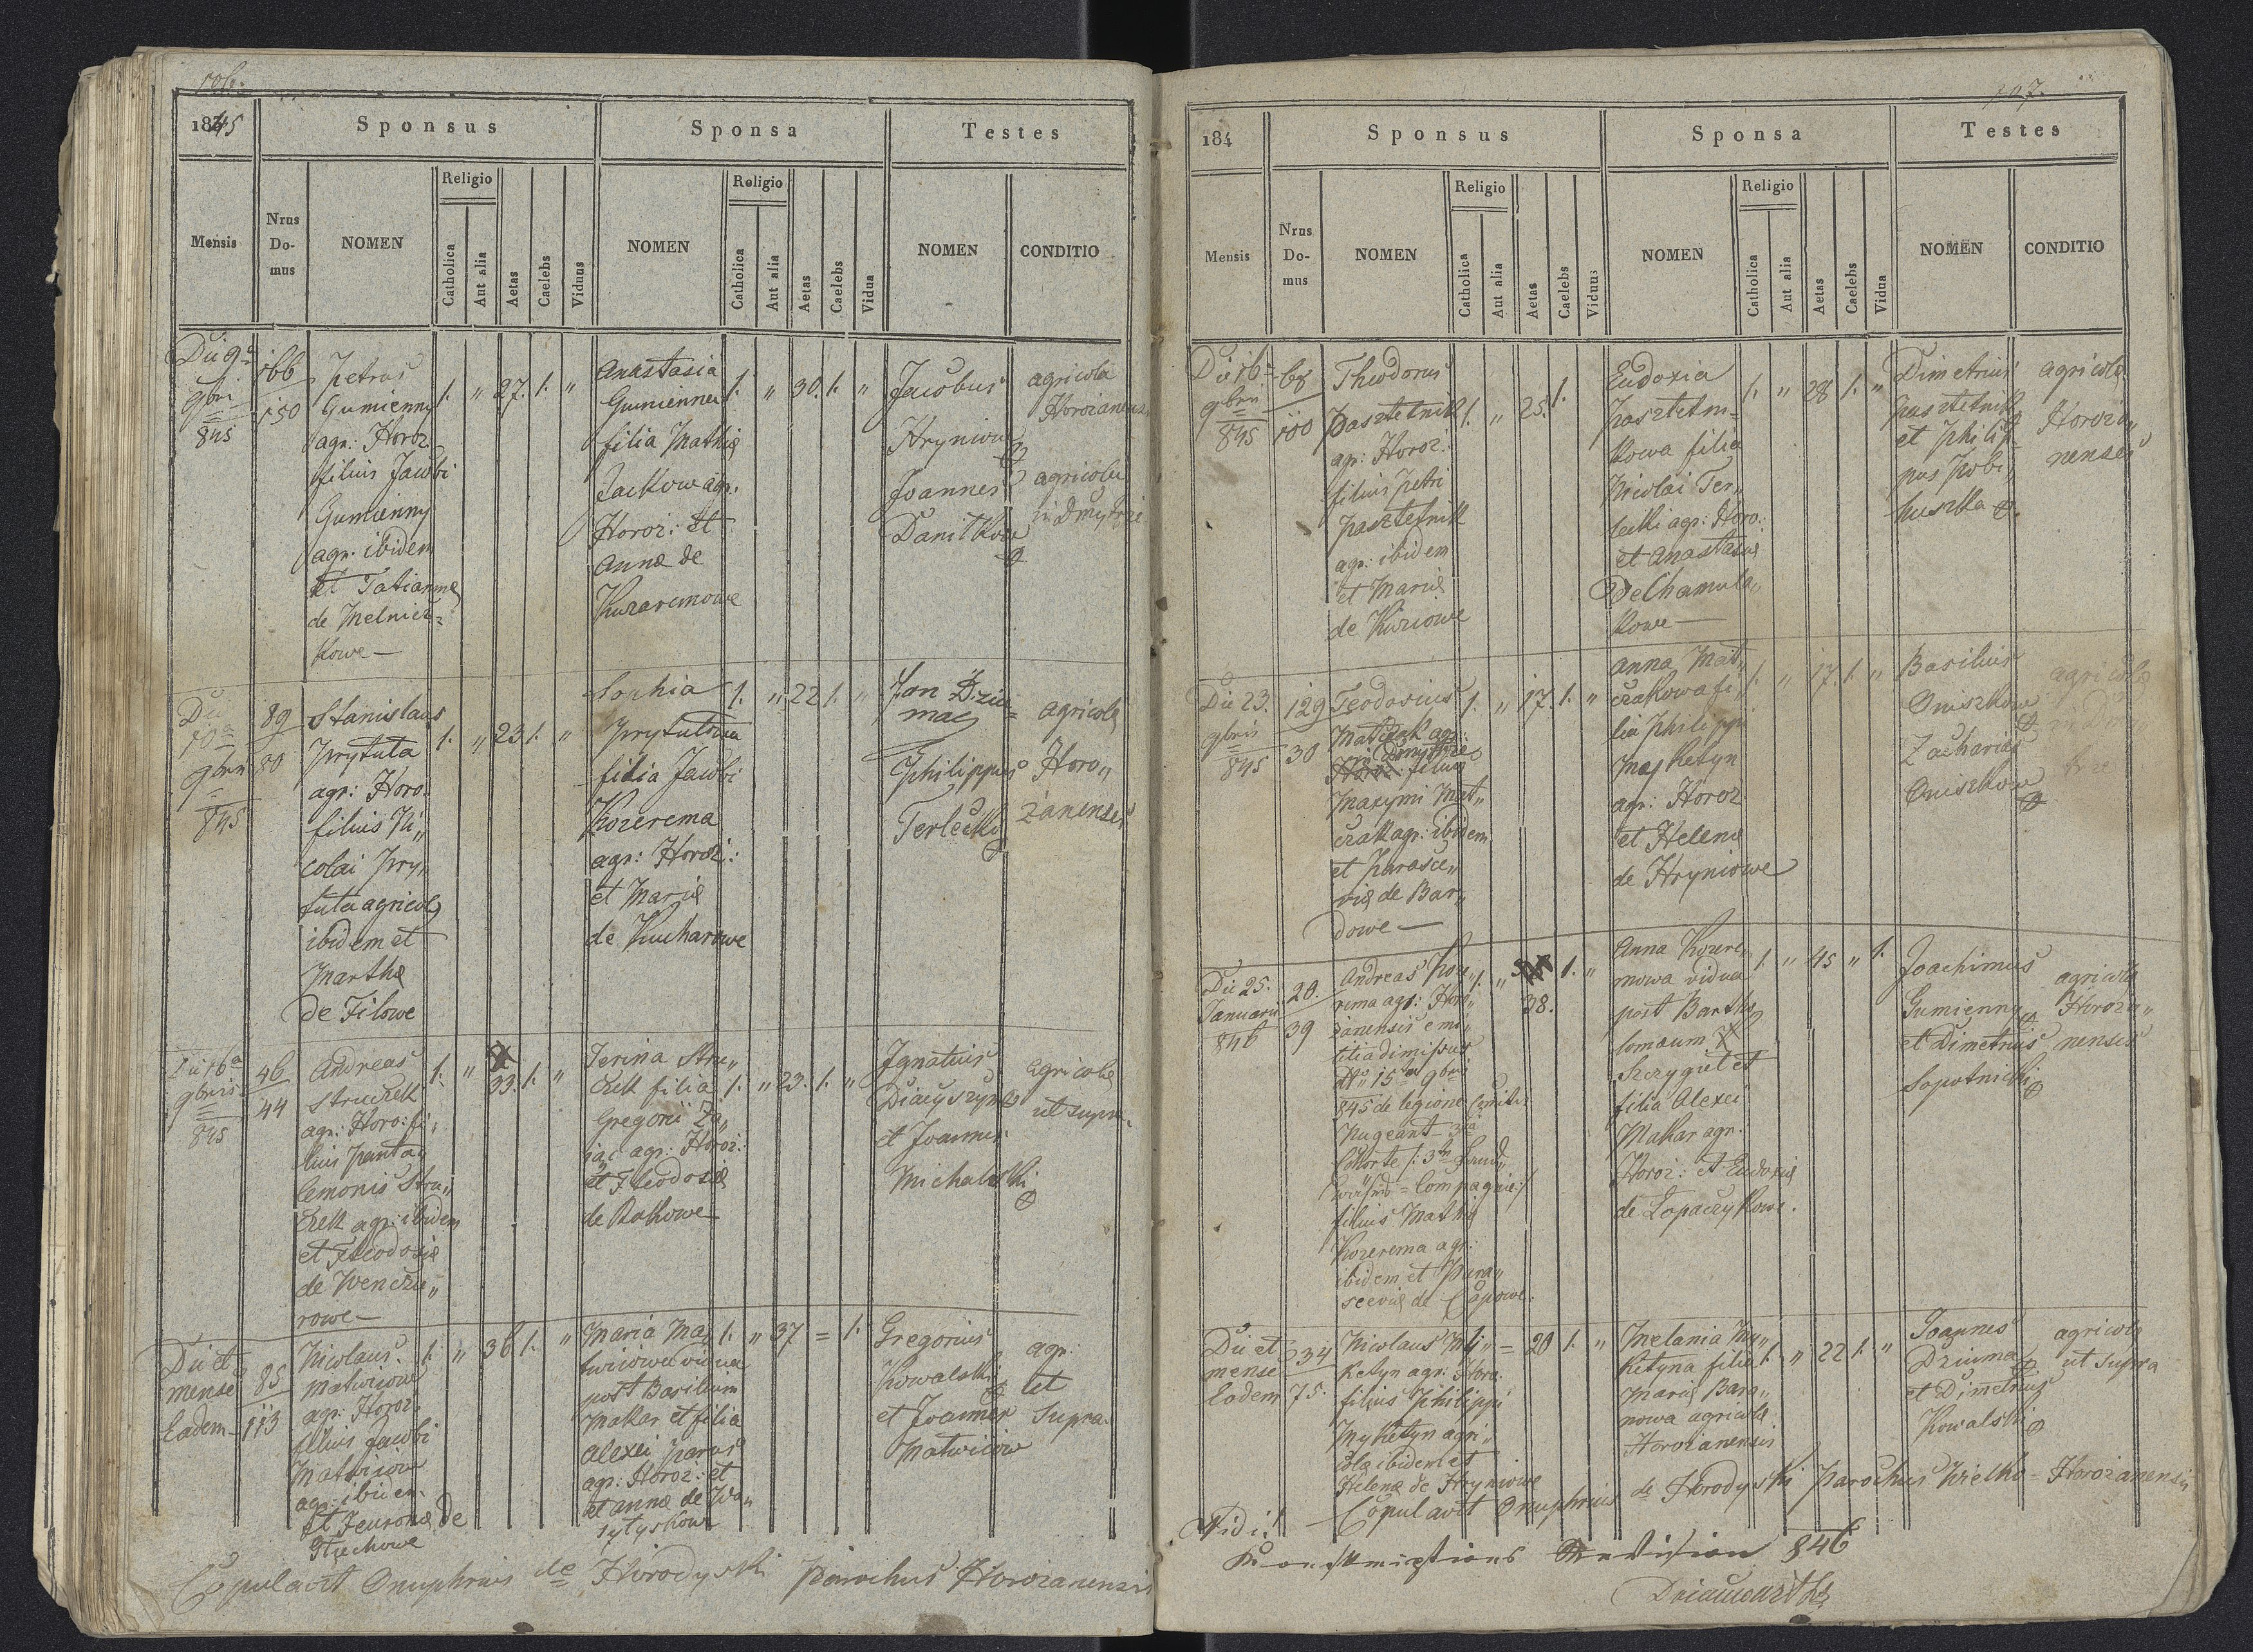 106.
1845
Sponsus
Sponsa
Testes
Mensis
Nrus Do-mus
NOMEN
Religio
Catholica
Aut alia
Aetas
Caelebs
Viduus
NOMEN
Religio
Catholica
Aut alia
Aetas
Caelebs
Vidua
NOMEN
CONDITIO
Die 9a
9bri
845
166
150
Petrus
Gumienny
agr. Horoz.
filius Jacobi
Gumienny
agr. ibidem
et Tatianna
de Melnicz-
kowe
1. " 27. 1. "
Anastasia
Gumienna
filia Mathiæ
Jackow agr.
Horoz: et
Annæ de
Kuzaremowe
1. " 30. 1. "
Jacobus
Hryniow
Joannes
Danilkow
agricola
Horozanensis
agricola
in Dmytrze
Die
10a
9bris
845
89
80
Stanislaus
Prytuta
agr: Horo.
filius Ni"
colai Pry"
tuta agricolæ
ibidem et
Marthæ
de Filowe
1. " 23 1. "
Sophia
Prytutowa
filia Jacobi
Kozerema
agr: Horoz:
et Mariæ
de Kucharowe
1. " 22 1. "
Jan Dziu=
mac
Philippus
Terlecki
agricolæ
Horo"
zanenses
Die 16a
9bris
845
46
44
Andreas
Struczek
agr: Horo: fi"
lius Panta"
lemonis Stru"
czek agr: ibidem
et Theodosiæ
de Wencza"
rowe
1. " 33. 1. "
Ierina Stru"
czek filia
Gregorii Za"
jac agr: Horoz:
et Theodosiæ
de Rakowe
1. " 23. 1. "
Ignatius
et Joannes
Michalski
agricolæ
ut supra.
Die et
mense
Eadem
85
113
Nicolaus
Matwiiow
agr: Horoz.
filius Jacobi
Matwiiow
agr: ibidem
et Feuronæ de
1. " 36 1. "
Maria Ma"
twiiowa vidua
post Basilium
Makar et filia
Alexei Parus
agr: Horoz: et
et Annæ de Wa"
1. " 37 = 1.
Gregorius
Kowalski
et Joannes
Matwiiow
agr:
ut
Supra.
Copulavit Onuphrius de Horodyski Parochus Horozanensis
107.
184
Sponsus
Sponsa
Testes
Mensis
Nrus Do-mus
NOMEN
Religio
Catholica
Aut alia
Aetas
Caelebs
Viduus
NOMEN
Religio
Catholica
Aut alia
Aetas
Caelebs
Vidua
NOMEN
CONDITIO
Die 16a
9bris
845
68
100
Theodorus
Pasztetnik
agr: Horoz:
filius Petri
Pasztetnik
agr: ibidem
et Mariæ
de Kuziowe
1. " 25. 1.
Eudoxia
Pasztetni=
kowa filia
Nicolai Ter"
lecki agr: Horo:
et Anastasiæ
de Chamula"
kowe
1. " 28 1. "
Dimetrius
Pasztetnik
et Philip"
pus Pobi"
huszka
agricolæ
Horoza"
nenses
Die 23.
9bris
845
129
30
Teodosius
Matczak agr:
Dmytrze
filius
Maxymi Mat"
czak agr: ibidem
et Parasce"
viæ de Bar"
dowe
1. " 17. 1. "
Anna Mat"
czakowa fi"
lia Philippi
Myketyn
agr: Horoz
et Helenæ
de Hryniowe
1. " 17. 1. "
Basilius
Oniszkow
Zacharias
Oniszkow
agricolæ
in Dmy"
trze
Die 25.
Januarii
846
20.
39
Andreas Koze"
rema agr: Horo"
zanensis e mi"
litia dimissus
15a 9bris
845 de legione Comitis
Nugeant 3a
Cohorte
Compagnie
filius Mathiæ
Kozerema agr:
ibidem et Para"
sceviæ de Capowe.
1. " 38. 1. "
Anna Kozere"
mowa vidua
post Bartho"
lomaum
Szczygiel et
filia Alexei
Makar agr.
Horoz: et Eudoxiæ
de Lopaczykowe.
1. " 45 " 1.
Joachimus
Gumienny
et Dimetrius
Sopotnicki
agricolæ
Horoza"
nenses
Die et
mense
Eadem
34
75.
Nicolaus My"
ketyn agr: Horo:
filius Philippi
Myketyn agri"
colæ ibidem et
Helenæ de Hryniowe
= 20 1. "
Melania My"
ketyna filia
Mariæ Bara"
nowa agricolæ
Horozanensis
1. " 22 1. "
Joannes
Dziuma
et Dimetrius
Kowalski
agricolæ
ut supra
Copulavit Onuphrius de Horodyski Parochus Wielko=Horozanensis
Vidi!
Konskriptions Revision 846